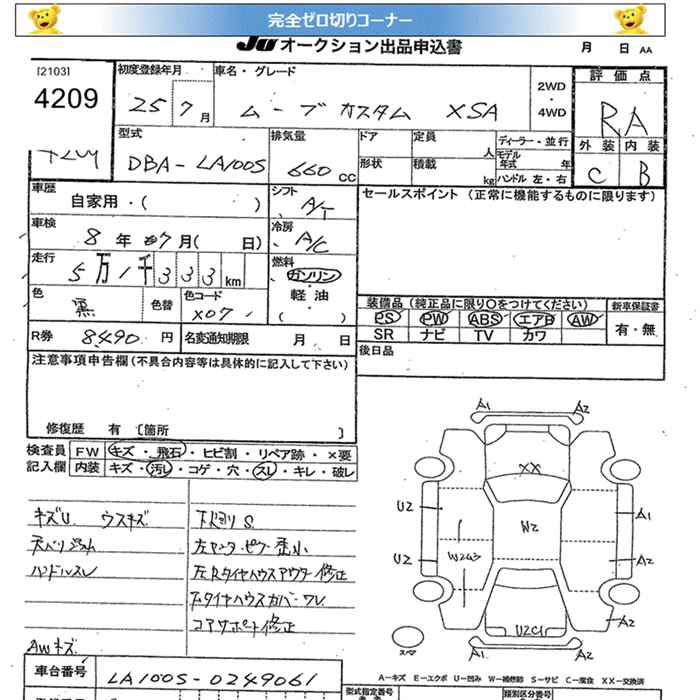 完全ゼロ切りコーナー
JU オークション出品申込書 月 日 AA
[2103]
4209
4209
初度登録年月 25 7月
車名・グレード ムーブカスタム XSA
2WD
・
4WD
評価点
RA
外装 内装
C B
型式 DBA-LA100S
排気量 660 cc
ドア
定員 人
形状
積載 kg
ディーラー・並行
モデル年式 年
ハンドル 左・右
車歴 自家用・( )
シフト A/T
セールスポイント (正常に機能するものに限ります)
車検 8年 7月( 日)
冷房 A/C
走行 5万1千333km
燃料 ガソリン
軽油
( )
色 黒
色替
色コード X07
装備品 (純正品に限り〇をつけてください)
新車保証書
PS PW ABS エアB AW
SR ナビ TV カワ
有・無
R券 8490円
名変通知期限 月 日
後日品
注意事項申告欄 (不具合内容等は具体的に記入して下さい)
修復歴 有 [箇所 ]
検査員記入欄
FW キズ・飛石・ヒビ割・リペア跡・×要
内装 キズ・汚レ・コゲ・穴・スレ・キレ・破レ
キズU ウスキズ
天バリジミ
ハンドルスレ
AWキズ
下廻りS
左右タイヤハウスアウター修正
コアサポート修正
A1 A2
XX
U2 W2 A1
U2 W2U3 A2
U2C1 A2
A1 A2
スペア
A-キズ E-エクボ U-凹み W-補修跡 S-サビ C-腐食 XX-交換済
車台番号 LA100S-0249061
型式指定番号
類別区分番号